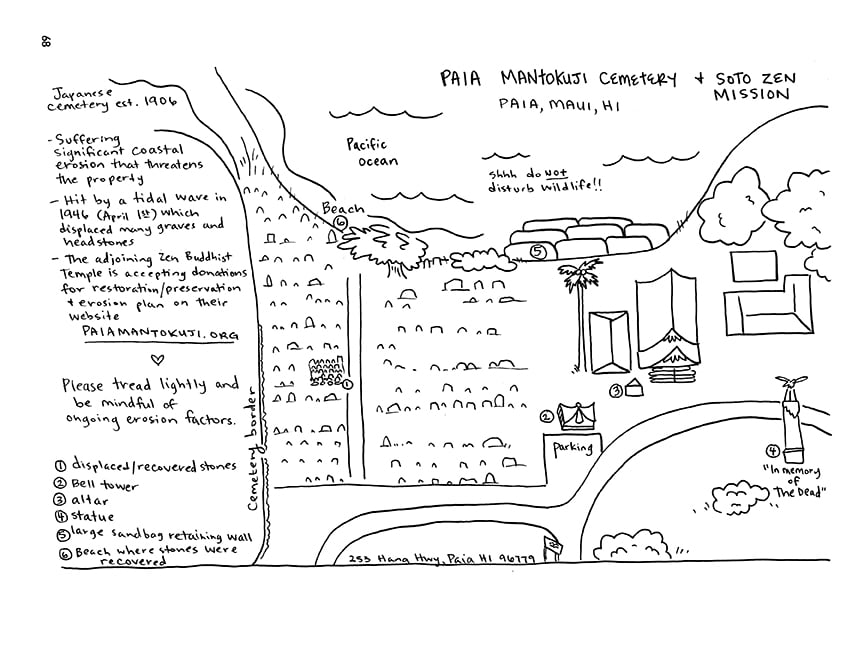 68
PAIA MANTOKUJI CEMETERY + SOTO ZEN
MISSION
PAIA, MAUI, HI
Japanese
cemetery est. 1906
- Suffering
significant coastal
erosion that threatens
the property
- Hit by a tidal wave in
1946 (April 1st) which
displaced many graves and
headstones
- The adjoining Zen Buddhist
Temple is accepting donations
for restoration/preservation
+ erosion plan on their
website
PAIAMANTOKUJI.ORG
♡
Please tread lightly and
be mindful of
ongoing erosion factors.
① displaced/recovered stones
② Bell tower
③ altar
④ statue
⑤ large sandbag retaining wall
⑥ Beach where stones were
recovered
Pacific
ocean
Shhh do NOT
disturb wildlife!!
Beach
⑥
⑤
①
③
②
parking
④
"In memory
of
The Dead"
Cemetery border
253 Hana Hwy, Paia HI 96779